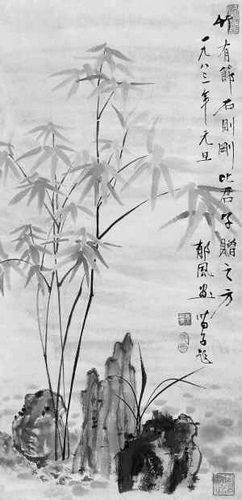 竹有節石則剛比君子贈之方
一九八三年元旦
郁風畫 苗子題